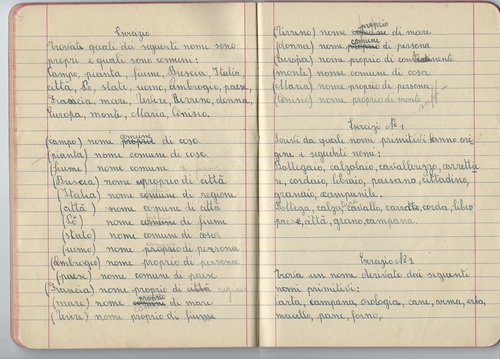 Esercizio
Trovate quali dei seguenti nomi sono
propri e quali sono comuni:
Campo, pianta, fiume, Brescia, Italia,
città, Pò, stato, uomo, Ambrogio, paese,
Francia, mare, Tevere, Tirreno, donna,
Europa, monte, Maria, Cenisio.
(campo) nome comune di cose
(pianta) nome comune di cose
(fiume) nome comune
(Brescia) nome proprio di città
(Italia) nome comune di regione
(città) nome comune di città
(Pò) nome comune di fiume
(stato) nome comune di cose
(uomo) nome proprio di persona
(Ambrogio) nome proprio di persona
(paese) nome comune di paese
(Francia) nome proprio di città regione
(mare) nome proprio comune di mare
(Tevere) nome proprio di fiume
(Tirreno) nome proprio comune di mare
(donna) nome comune proprio di persona
(Europa) nome proprio di continente
(monte) nome comune di cosa
(Maria) nome proprio di persona
(Cenisio) nome proprio di monte
Esercizi N° 1
Scrivi da quali nomi primitivi hanno ori
gine i seguenti nomi:
Bottegaio, calzolaio, cavallerizzo, carrettie
re, cordaio, libraio, paesano, cittadino,
granaio, campanile
Bottega, calza, cavallo, carretto, corda, libro
paese, città, grano, campana.
Esercizio N° 2
Trova un nome derivato dai seguenti
nomi primitivi:
carta, campana, orologio, cane, arma, erba,
macello, pane, forno,